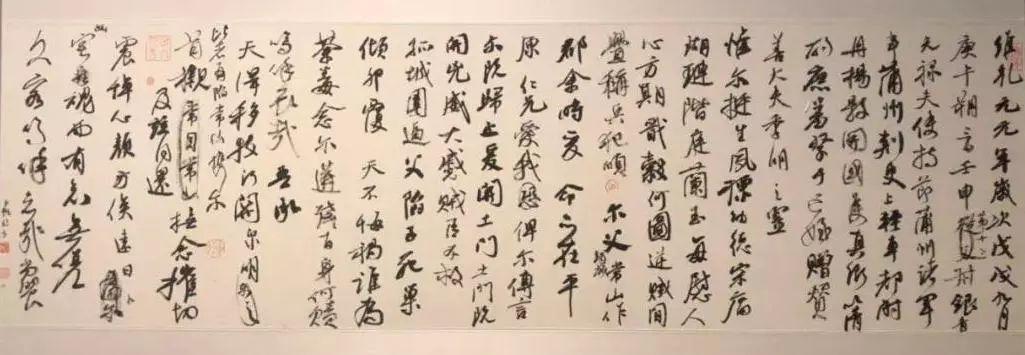 維乾元元年歲次戊戌九月
庚午朔三日壬申第十三叔銀青
光祿夫使持節蒲州諸軍
事蒲州刺史上輕車都尉
丹楊縣開國侯真卿以清
酌庶羞祭于亡姪贈贊
善大夫季明之靈
惟爾挺生夙標幼德宗廟
瑚璉階庭蘭玉每慰人
心方期戩穀何圖逆賊間
釁稱兵犯順爾父竭誠常山作
郡余時受命亦在平
原仁兄愛我恐俾爾傳言
爾既歸止爰開土門土門既
開兇威大蹙賊臣不救
孤城圍逼父陷子死巢
傾卵覆天不悔禍誰為
荼毒念爾遘殘百身何贖
嗚呼哀哉吾承
天澤移牧河關爾明
比者再陷常山攜爾
首櫬撫念摧切
及茲同還
震悼心顏方俟遠日卜
幽宅魂而有知無嗟
久客嗚呼哀哉尚饗